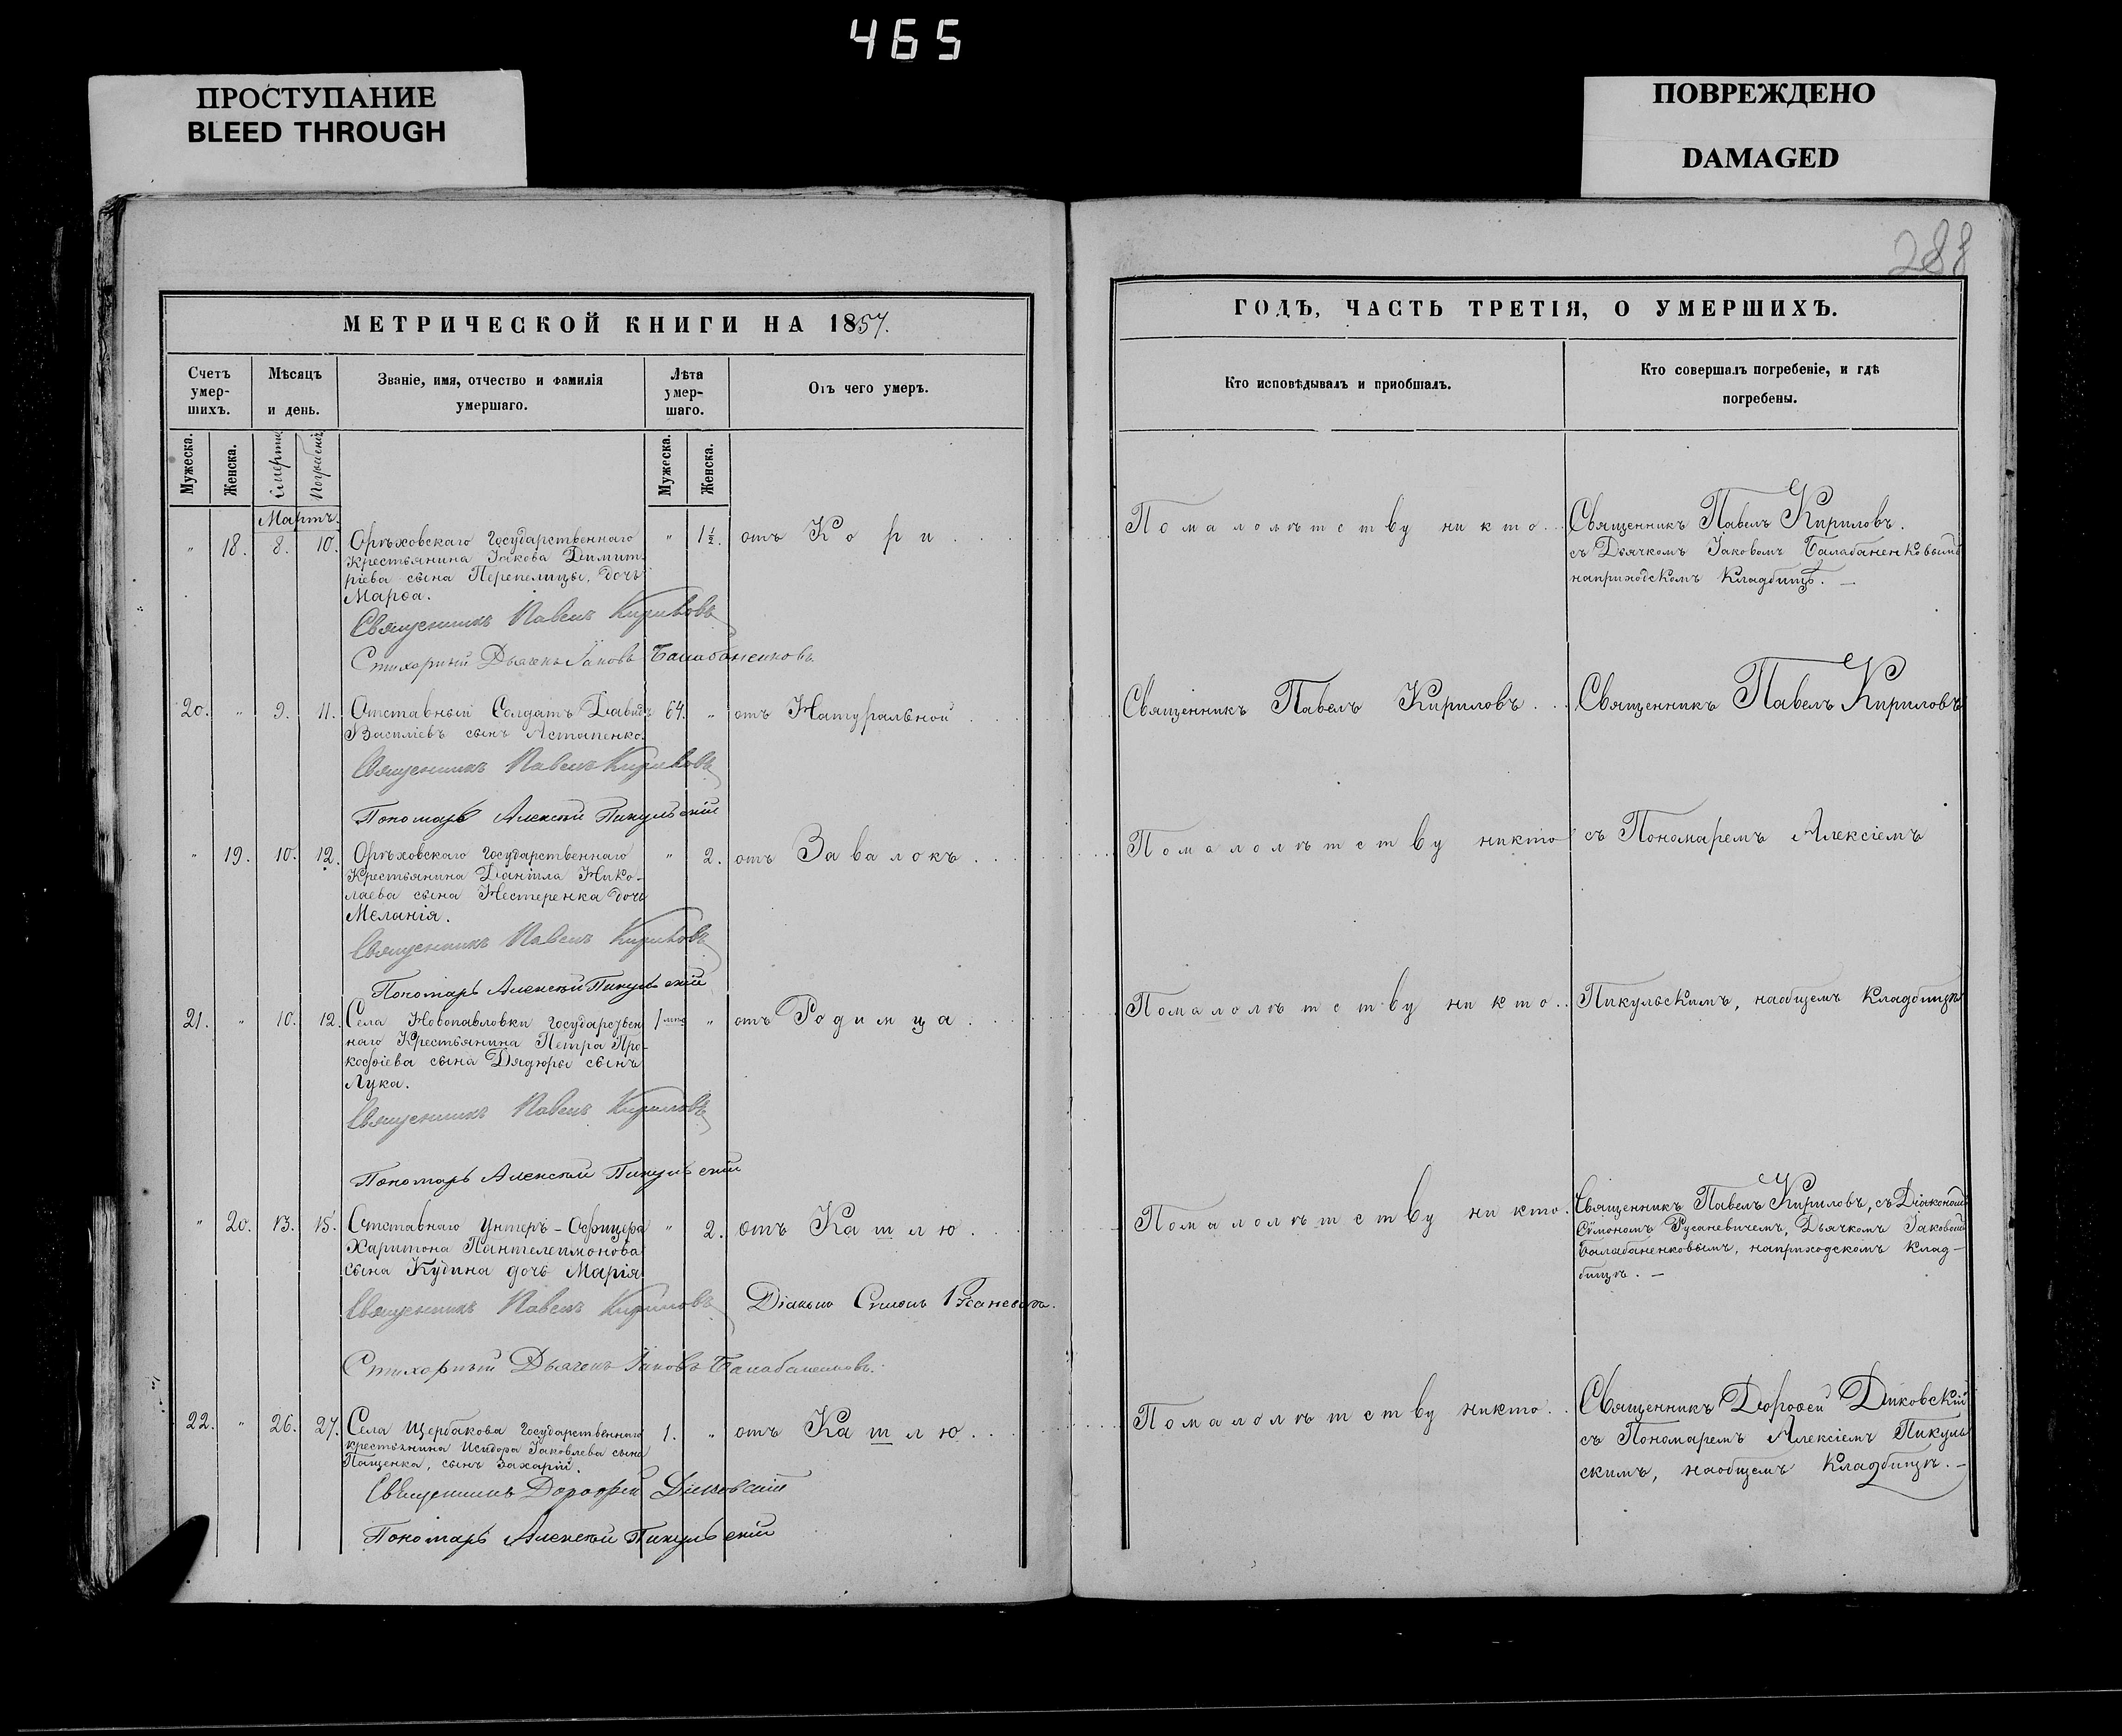 465
ПРОСТУПАНИЕ
BLEED THROUGH
ПОВРЕЖДЕНО
DAMAGED
288
МЕТРИЧЕСКОЙ КНИГИ НА 1857.
Счетъ умер-шихъ.
Мѣсяцъ и день.
Званіе, имя, отчество и фамилія умершаго.
Лѣта умер-шаго.
Отъ чего умеръ.
Мужеска.
Женска.
Смерти
Погребенія
Мужеска.
Женска.
Мартъ.
" 18. 8. 10. Орѣховскаго Государственнаго " 1½. отъ Кори . . .
крестьянина Іакова Димит-
ріева сына Перепелицы, дочь
Марѳа.
Священникъ Павелъ Кириловъ
Стихарный Дьячекъ Іаковъ Балабаненковъ.
20. " 9. 11. Отставный Солдатъ Давидъ 64. " отъ Натуральной .
Василіевъ сынъ Астапенко.
Священникъ Павелъ Кириловъ
Пономарь Алексѣй Пикульскій
" 19. 10. 12. Орѣховскаго Государственнаго " 2. отъ Завалокъ . . .
Крестьянина Даніила Нико-
лаева сына Нестеренка дочь
Меланія.
Священникъ Павелъ Кириловъ
Пономарь Алексѣй Пикульскій
21. " 10. 12. Села Новопавловки Государствен- 1 " отъ Родимца . . .
наго Крестьянина Петра Про-
кофіева сына Дядюры сынъ
Лука.
Священникъ Павелъ Кириловъ
Пономарь Алексѣй Пикульскій
" 20. 13. 15. Отставнаго Унтеръ-Офицера " 2. отъ Кашлю . . .
Харитона Пантелеимонова
сына Кудина дочь Марія
Священникъ Павелъ Кириловъ Діаконъ Сѵмеонъ
Стихарный Дьячекъ Іаковъ Балабаненковъ.
22. " 26. 27. Села Щербакова Государственнаго 1. " отъ Кашлю . . .
крестьянина Исидора Іаковлева сына
Пащенка, сынъ Захарій.
Священникъ Дорофей Диковскій
Пономарь Алексѣй Пикульскій
ГОДЪ, ЧАСТЬ ТРЕТІЯ, О УМЕРШИХЪ.
Кто исповѣдывалъ и пріобщалъ.
Кто совершалъ погребеніе, и гдѣ погребены.
Помалолѣтству никто. . Священникъ Павелъ Кириловъ.
съ Дьячкомъ Іаковомъ Балабаненковымъ
наприходскомъ кладбищѣ. —
Священникъ Павелъ Кириловъ . . Священникъ Павелъ Кириловъ
Помалолѣтству никто съ Пономаремъ Алексіемъ
Помалолѣтству никто. . Пикульскимъ, наобщемъ кладбищѣ
Помалолѣтству никто. Священникъ Павелъ Кириловъ, съ Діакономъ
Сѵмономъ Русаневичемъ, Дьячкомъ Іаковомъ
Балабаненковымъ, наприходскомъ клад-
бищѣ. —
Помалолѣтству никто. . Священникъ Дороѳей Диковскій
съ Пономаремъ Алексіемъ Пикуль
скимъ, наобщемъ кладбищѣ. —